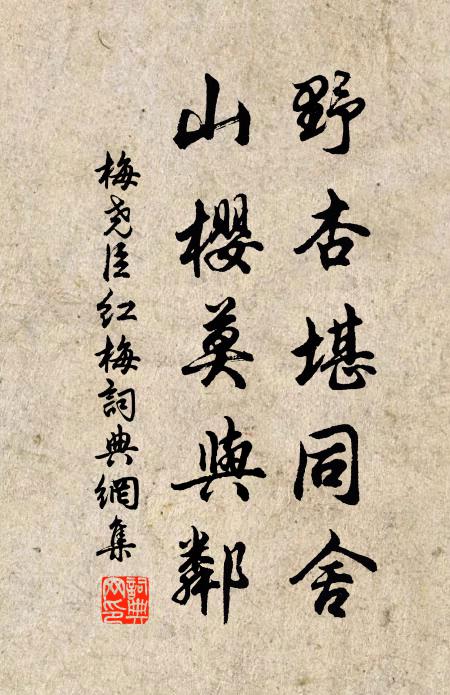 野杏堪同舍
山櫻莫與鄰
梅堯臣紅梅詞典網集